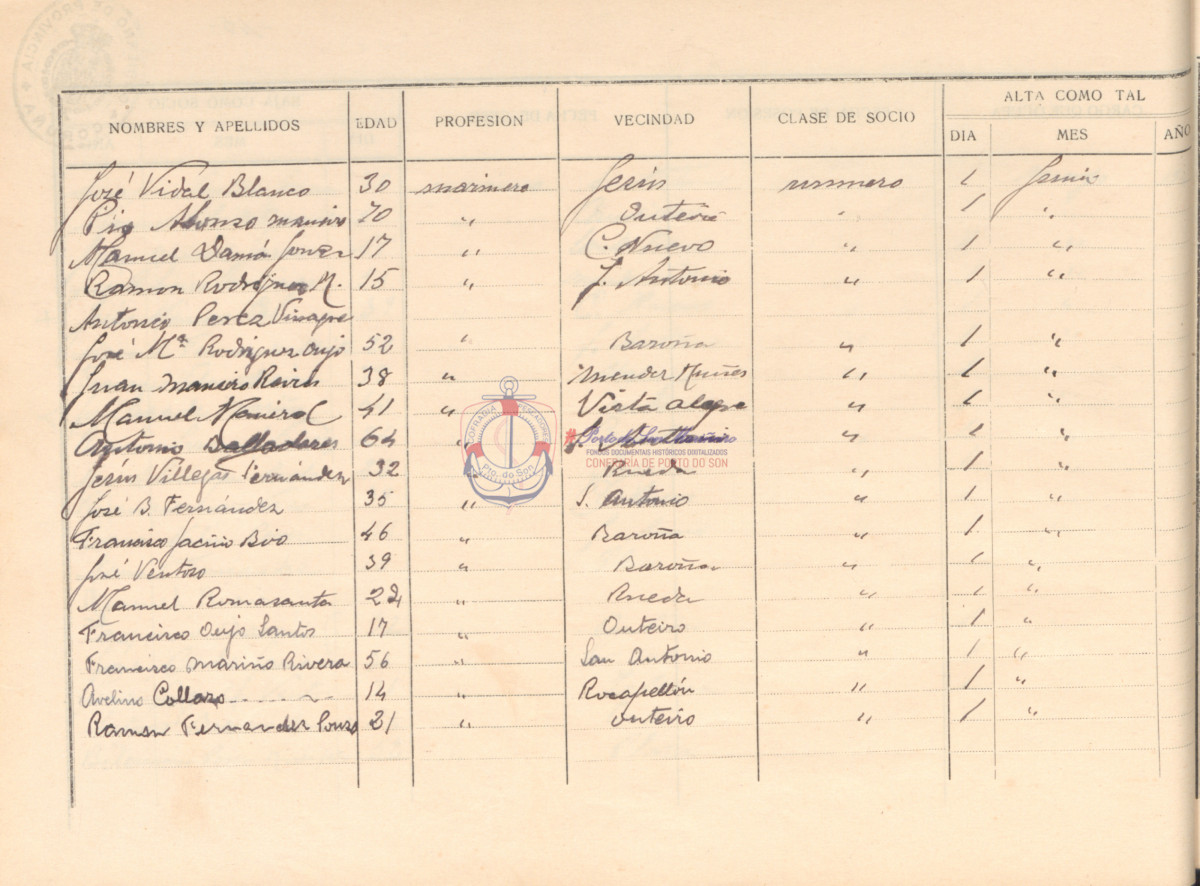 ALTA COMO TAL
NOMBRES Y APELLIDOS EDAD PROFESION VECINDAD CLASE DE SOCIO DIA MES AÑO
José Vidal Blanco 30 marinero Jesús numero 1 Junio
Pio Alonso maneiro 70 " " 1 "
Manuel 17 " C. Nuevo " 1 "
Ramon Rodriguez M. 15 " J. Antonio " 1 "
Antonio Perez
José Mª Rodriguez Oujo 52 " Baroña " 1 "
Juan maneiro 38 " Mendez Nuñes " 1 "
Manuel 41 " Vista alegre " 1 "
Antonio Dalladares 64 " " 1 "
Jesús Villegas Fernández 32 " Rueda " 1 "
José B. Fernández 35 " S. Antonio " 1 "
Francisco 46 " Baroña " 1 "
José Ventoso 39 " Baroña " 1 "
Manuel Romasanta 22 " Rueda " 1 "
Francisco Oujo Santos 17 " Outeiro " 1 "
Francisco Mariño Rivera 56 " San Antonio " 1 "
Avelino Collazo 14 " Rocapellón " 1 "
Ramon Fernandez Souza 21 " Outeiro " 1 "
COFRADIA PESCADORES
Pto. do Son
FONDOS DOCUMENTAIS HISTÓRICOS DIGITALIZADOS
CONFRARÍA DE PORTO DO SON